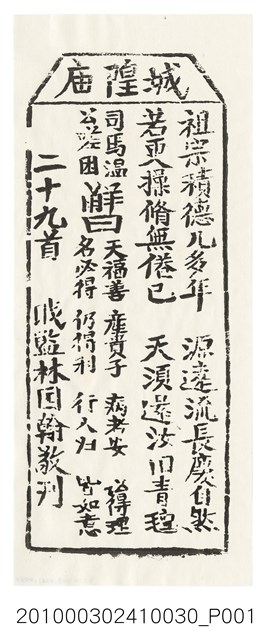 城隍庙
祖宗積德几多年 源遠流長慶自然
若更操脩無倦已 天須還汝旧青氊
司馬温公嗟困 解曰 名必得 仍得利 行人归 皆如意
天福善 産貴子 病者安 訟得理
二十九首 戝監林国翰敬刋
201000302410030_P001